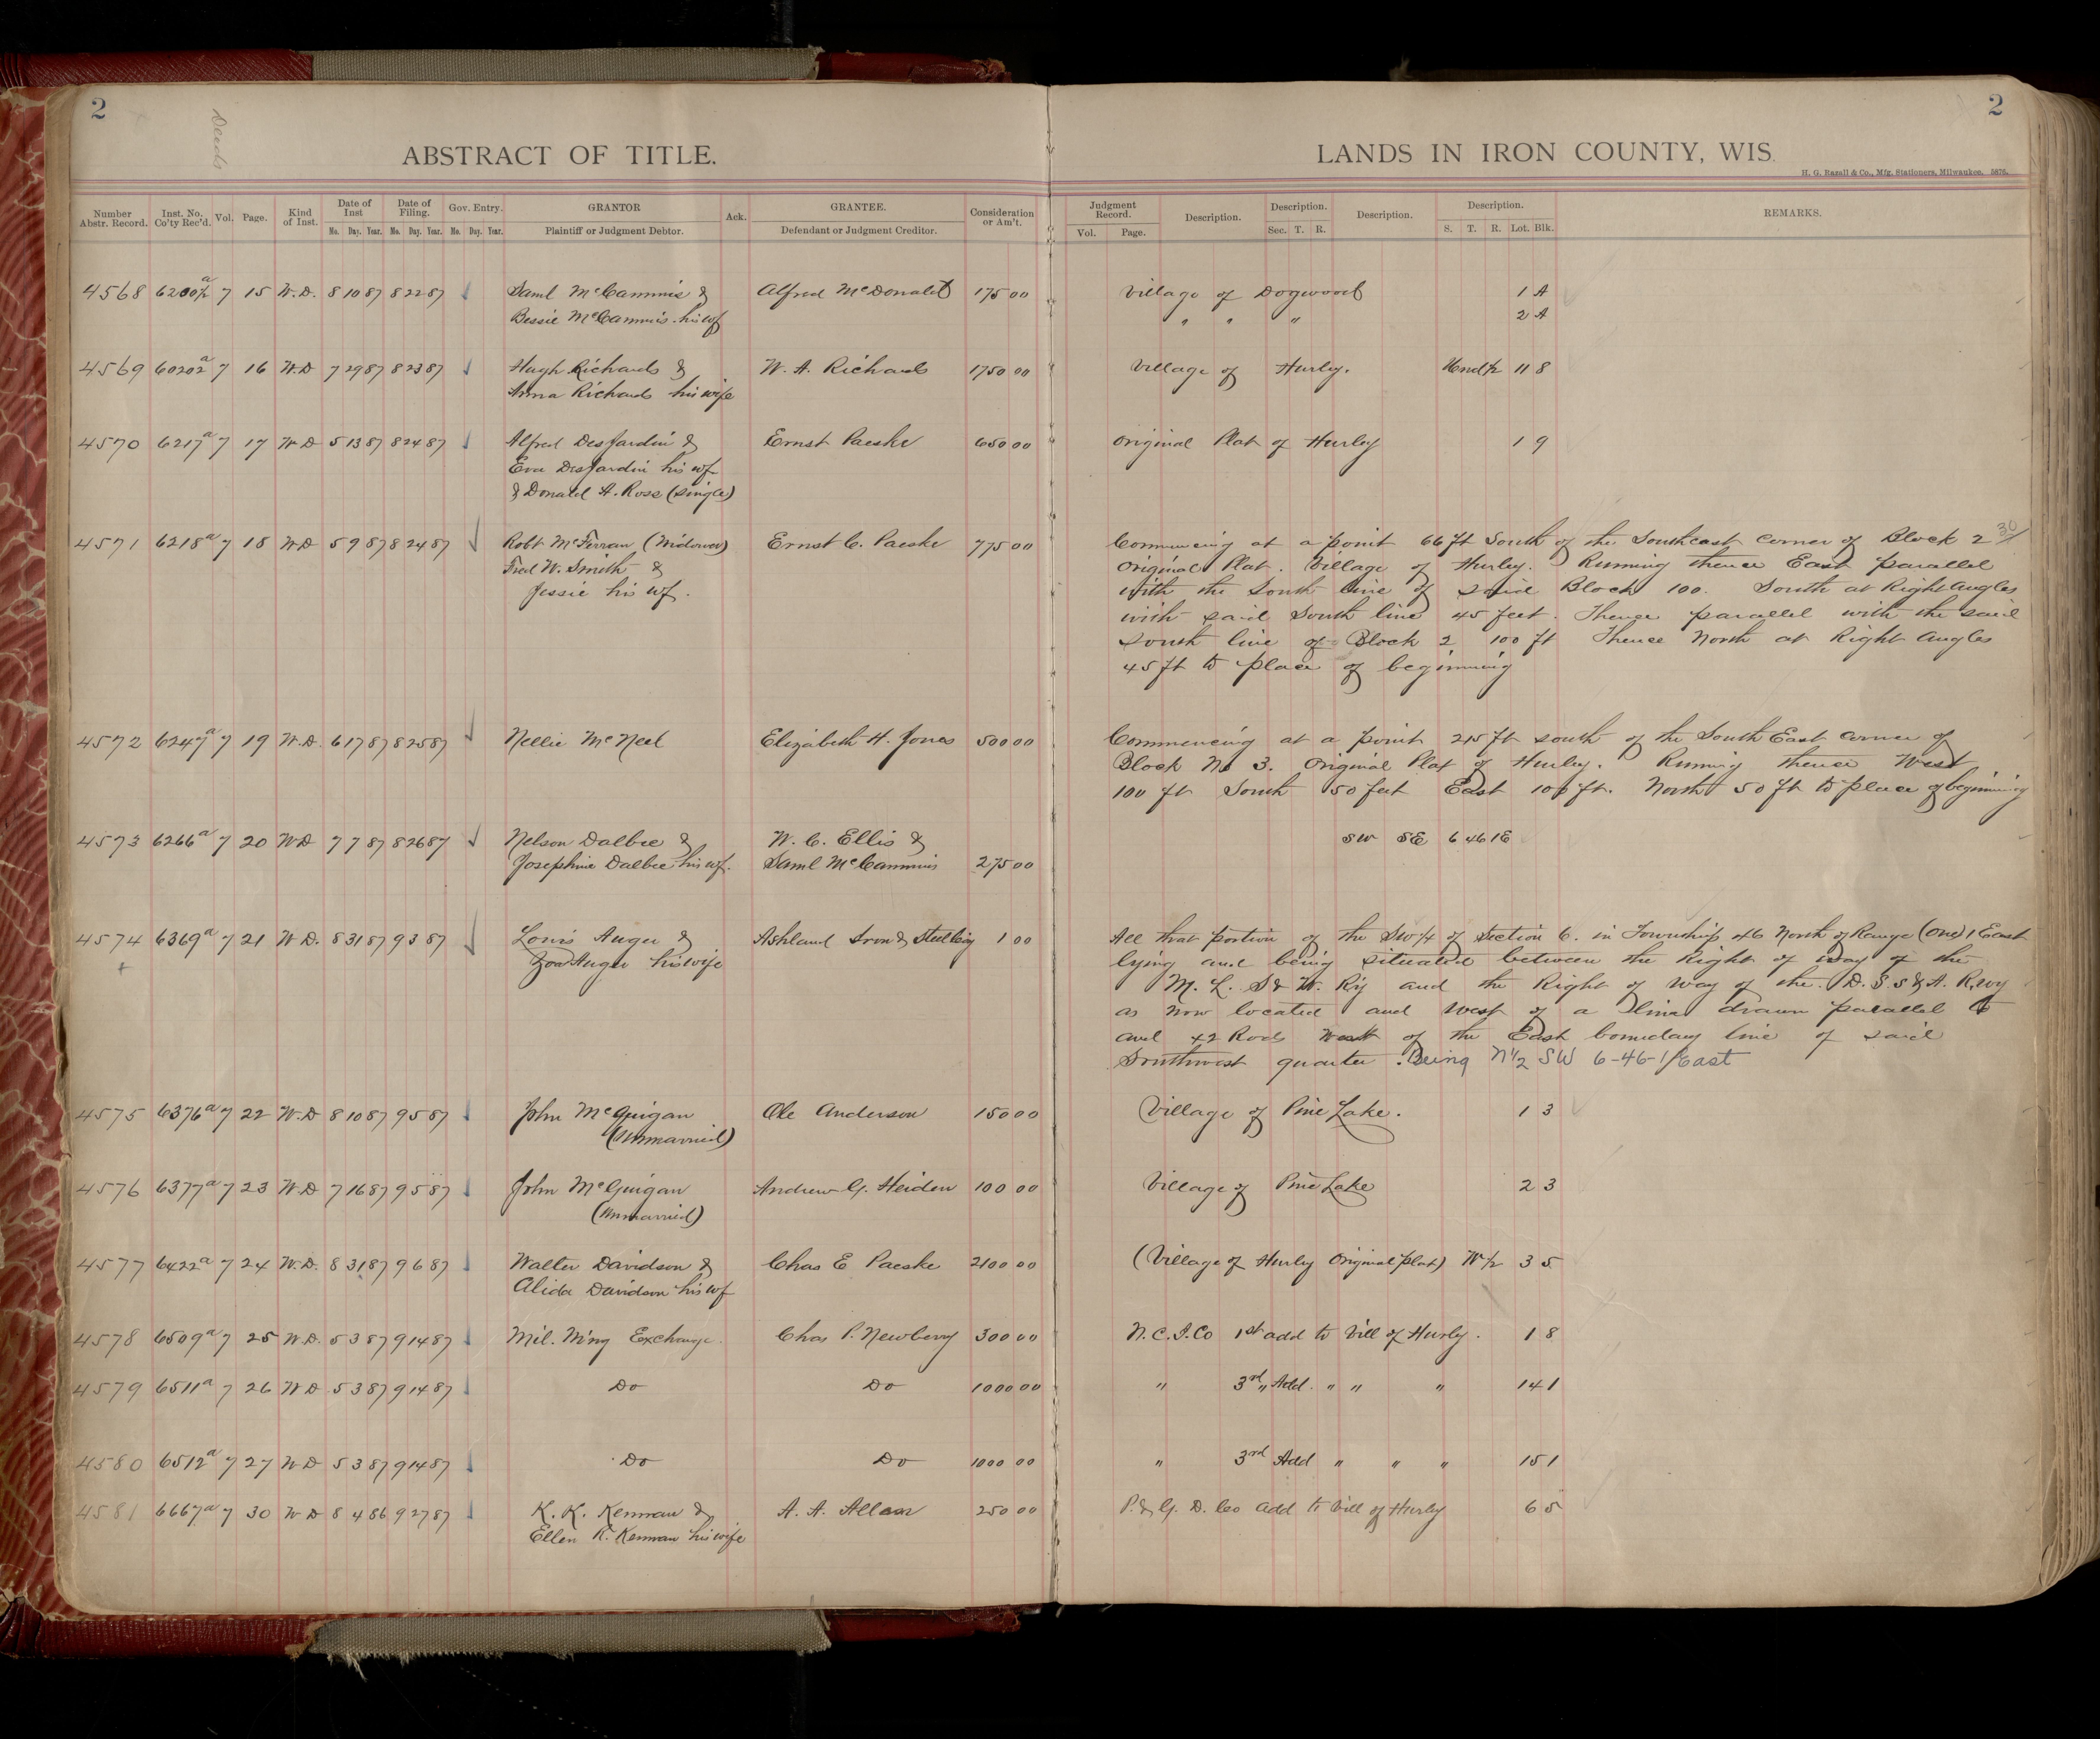 2
Deeds
2
ABSTRACT OF TITLE.
LANDS IN IRON COUNTY, WIS.
H. G. Razall & Co., Mfg. Stationers, Milwaukee. 5876.
Number Abstr. Record. Inst. No. Co'ty Rec'd. Vol. Page. Kind of Inst. Date of Inst Date of Filing. Gov. Entry. GRANTOR Ack. GRANTEE. Consideration or Am't. Judgment Record. Description. Description. Description. Description. REMARKS.
Mo. Day. Year. Mo. Day. Year. Mo. Day. Year. Plaintiff or Judgment Debtor. Defendant or Judgment Creditor. Vol. Page. Sec. T. R. S. T. R. Lot. Blk.
4568 7 15 W.D. 8 10 87 8 22 87 Saml McCammis & Alfred McDonald 175 00 Village of Dogwood 1 A
Bessie McCammis his wf " " " 2 A
4569 6020½ a 7 16 W.D 7 29 87 8 23 87 Hugh Richards & W. A. Richards 1750 00 Village of Hurley. 11 8
Anna Richards his wife
4570 6217 a 7 17 W D 5 13 87 8 24 87 Alfred DesJardin & Ernst Paeske 650 00 Original Plat of Hurley 1 9
Eva DesJardin his wf
& Donald A. Ross (single)
4571 6218 a 7 18 W D 5 9 87 8 24 87 Robt McFerran (Widower) Ernst C. Paeske 775 00 Commencing at a point 66 ft South of the Southeast Corner of Block 2
Fred W. Smith & Original Plat. Village of Hurley. Running thence East parallel
Jessie his wf. with the South line of said Block 100. South at Right Angles
with said South line 45 feet. Thence parallel with the said
South line of Block 2 100 ft Thence North at Right Angles
45 ft to place of beginning
4572 6247 a 7 19 W.D. 6 17 87 8 25 87 Nellie McNeel Elizabeth H. Jones 500 00 Commencing at a point 215 ft south of the South East Corner of
Block No 3. Original Plat of Hurley. Runing thence West
100 ft South 50 feet East 100 ft. North 50 ft to place of beginning
4573 6266 a 7 20 W D 7 7 87 8 26 87 Nelson Dalbec & W. C. Ellis & SW SE 6 46 1E
Josephine Dalbec his wf. Saml McCammis 275 00
4574 6369 a 7 21 W D. 8 31 87 9 3 87 Louis Auger & Ashland Iron & Steel Co 1 00 All that portion of the SW¼ of Section 6. in Township 46 North of Range (One) 1 East
Zoa Auger his wife lying and being situated between the Right of way of the
M. L. S & W. Ry and the Right of Way of the D. S. S & A. Rwy
as now located and West of a line drawn parallel to
and 42 Rods West of the East boundary line of said
Southwest quarter. Being N½ SW 6-46-1 East
4575 6376 a 7 22 W.D 8 10 87 9 5 87 John McGuigan Ole Anderson 150 00 Village of Pine Lake. 1 3
(Unmarried)
4576 6377 a 7 23 W.D 7 16 87 9 5 87 John McGuigan Andrew G. Heiden 100 00 Village of Pine Lake 2 3
(Unmarried)
4577 6422 a 7 24 W.D. 8 31 87 9 6 87 Walter Davidson & Chas E Paeske 2100 00 (Village of Hurley Original plat) W½ 3 5
Alida Davidson his wf
4578 6509 a 7 25 W.D. 5 3 87 9 14 87 Mil. M'ng Exchange. Chas P. Newberry 300 00 N.C.I.Co 1st add to Vill of Hurley. 1 8
4579 6511 a 7 26 W D 5 3 87 9 14 87 Do Do 1000 00 " 3rd " Add. " " " 14 1
4580 6512 a 7 27 W D 5 3 87 9 14 87 Do Do 1000 00 " 3rd Add " " " 15 1
4581 6667 a 7 30 W D 8 4 86 9 27 87 K. K. Kennan & A. A. Allan 250 00 P. & G. D. Co add to Vill of Hurley 6 5
Ellen K. Kennan his wife